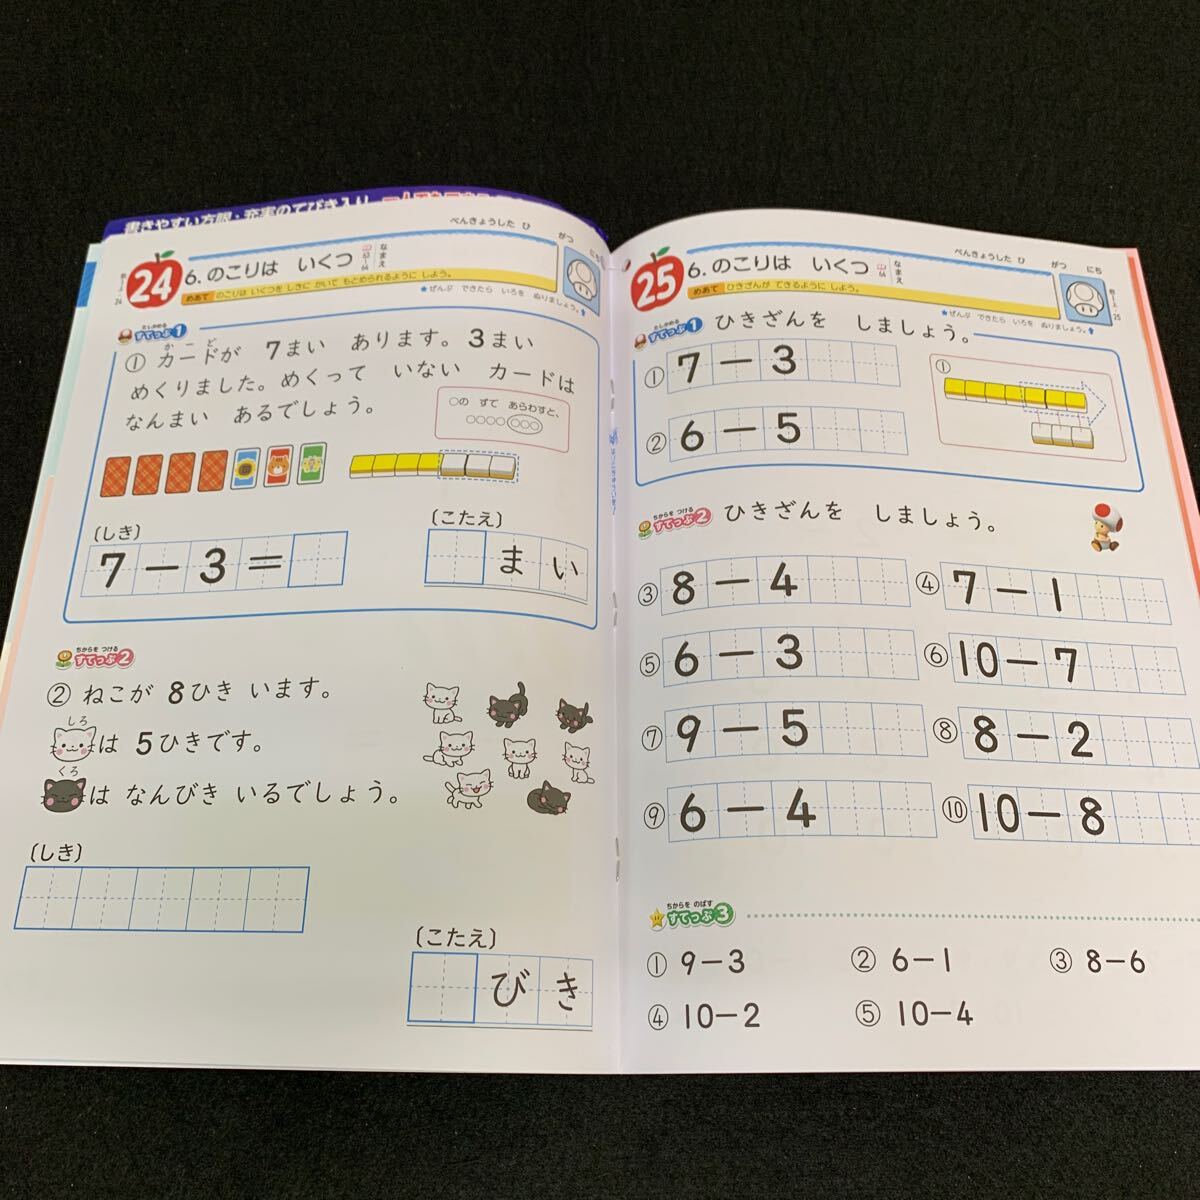 書きやすい方眼・充実のてびき入り
べんきょうした ひ がつ にち
24
6. のこりは いくつ
63~64
なまえ
めあて のこりは いくつを しきに かいて もとめられるように しよう。
★ぜんぶ できたら いろを ぬりましょう。
たしかめる
すてっぷ1
① カードが 7まい あります。3まい
めくりました。めくって いない カードは
なんまい あるでしょう。
○の すで あらわすと、
○○○○○○○
(しき)
7－3＝
(こたえ)
まい
ちからを つける
すてっぷ2
② ねこが 8ひき います。
しろ
は 5ひきです。
くろ
は なんびき いるでしょう。
(しき)
(こたえ)
びき
べんきょうした ひ がつ にち
25
6. のこりは いくつ
64
なまえ
めあて ひきざんが できるように しよう。
★ぜんぶ できたら いろを ぬりましょう。
たしかめる
すてっぷ1 ひきざんを しましょう。
① 7－3
①
② 6－5
ちからを つける
すてっぷ2 ひきざんを しましょう。
③ 8－4 ④ 7－1
⑤ 6－3 ⑥ 10－7
⑦ 9－5 ⑧ 8－2
⑨ 6－4 ⑩ 10－8
ちからを のばす
すてっぷ3
① 9－3 ② 6－1 ③ 8－6
④ 10－2 ⑤ 10－4